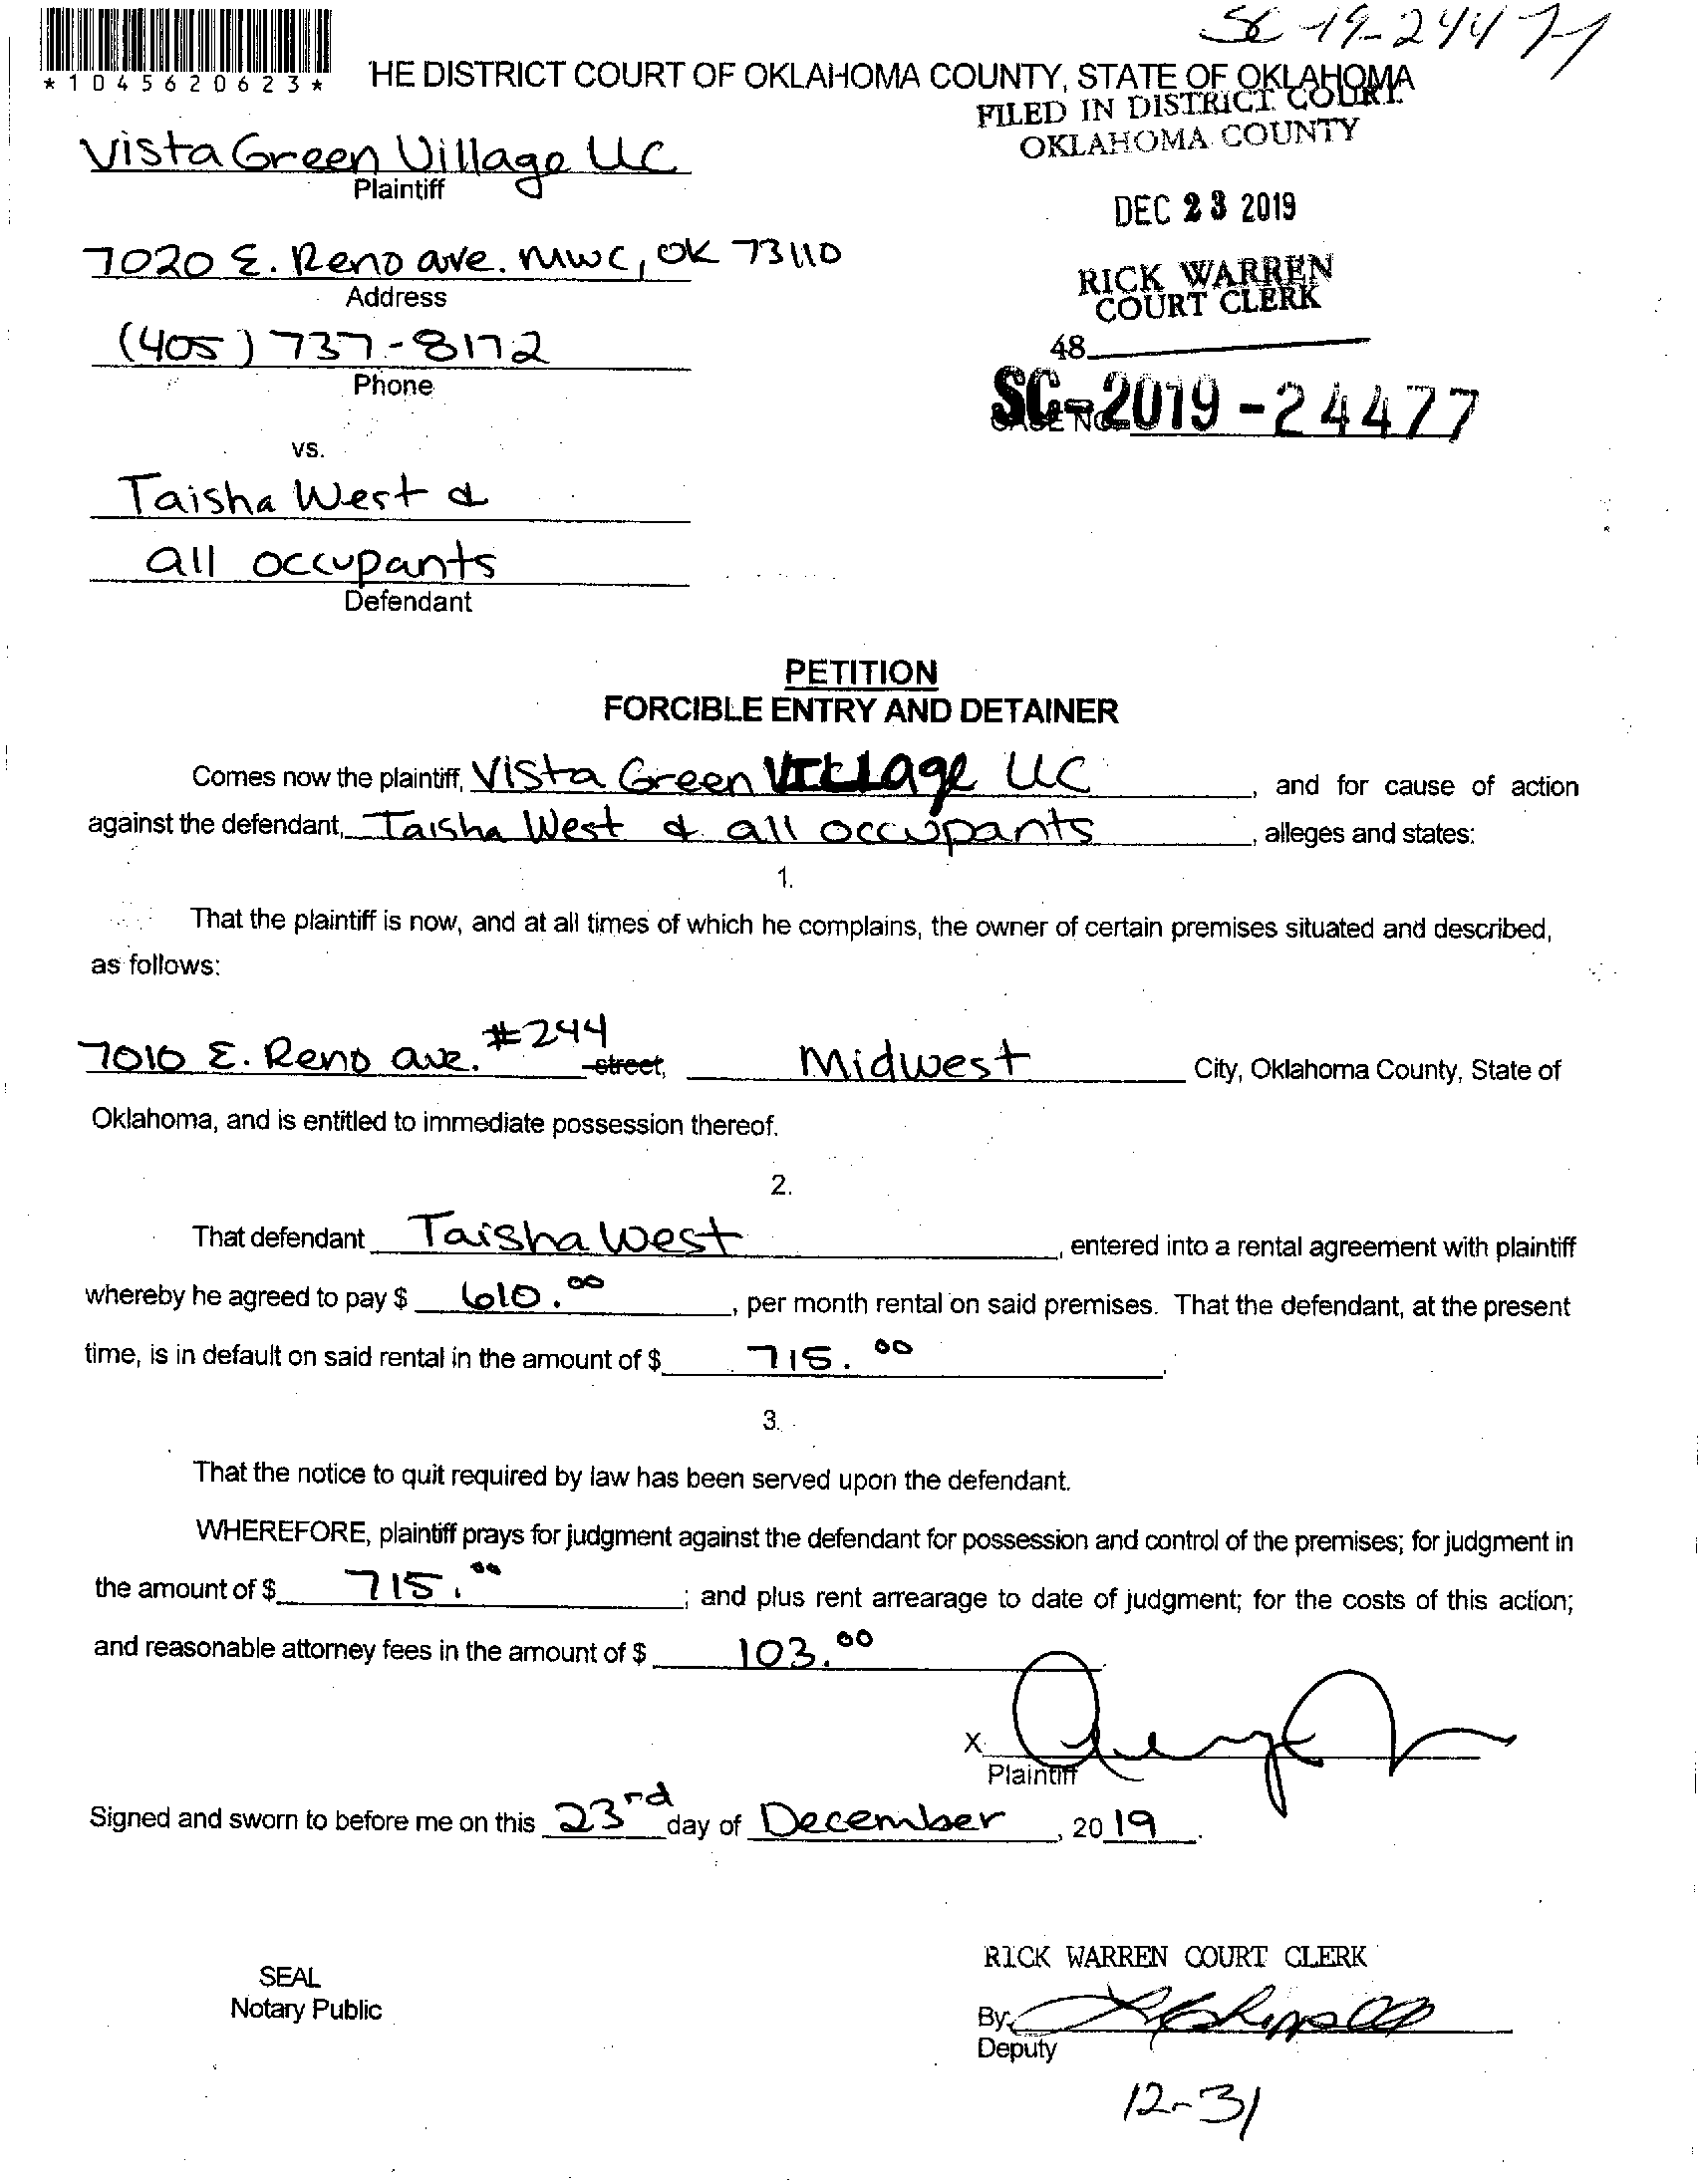 SC-19-24477-1
*1045620623*
HE DISTRICT COURT OF OKLAHOMA COUNTY, STATE OF OKLAHOMA
FILED IN DISTRICT COURT
OKLAHOMA COUNTY
Vista Green Village LLC
Plaintiff
DEC 23 2019
7020 E. Reno ave. MWC, OK 73110
Address
RICK WARREN
COURT CLERK
(405) 737-8172
Phone
48
SC-2019-24477
CASE NO.
vs.
Taisha West &
all occupants
Defendant
PETITION
FORCIBLE ENTRY AND DETAINER
Comes now the plaintiff, Vista Green Village LLC, and for cause of action
against the defendant, Taisha West & all occupants, alleges and states:
1.
That the plaintiff is now, and at all times of which he complains, the owner of certain premises situated and described,
as follows:
7010 E. Reno ave. #244 street, Midwest City, Oklahoma County, State of
Oklahoma, and is entitled to immediate possession thereof.
2.
That defendant Taisha West, entered into a rental agreement with plaintiff
whereby he agreed to pay $ 610.00, per month rental on said premises. That the defendant, at the present
time, is in default on said rental in the amount of $ 715.00.
3.
That the notice to quit required by law has been served upon the defendant.
WHEREFORE, plaintiff prays for judgment against the defendant for possession and control of the premises; for judgment in
the amount of $ 715.00; and plus rent arrearage to date of judgment; for the costs of this action;
and reasonable attorney fees in the amount of $ 103.00
X
Plaintiff
Signed and sworn to before me on this 23rd day of December, 2019.
RICK WARREN COURT CLERK
SEAL
Notary Public
By
Deputy
12-31